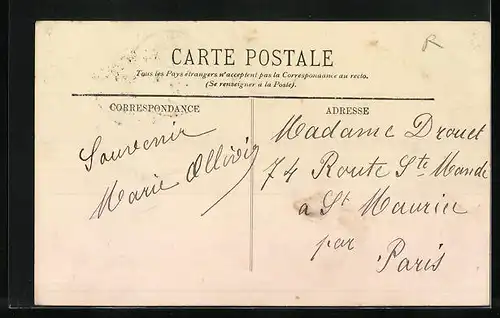 CARTE POSTALE
Tous les Pays étrangers n'acceptent pas la Correspondance au recto.
(Se renseigner à la Poste).
CORRESPONDANCE
Souvenir
Marie Ollivier
ADRESSE
Madame Drouet
74 Route Ste Mandé
à St Maurice
par
Paris